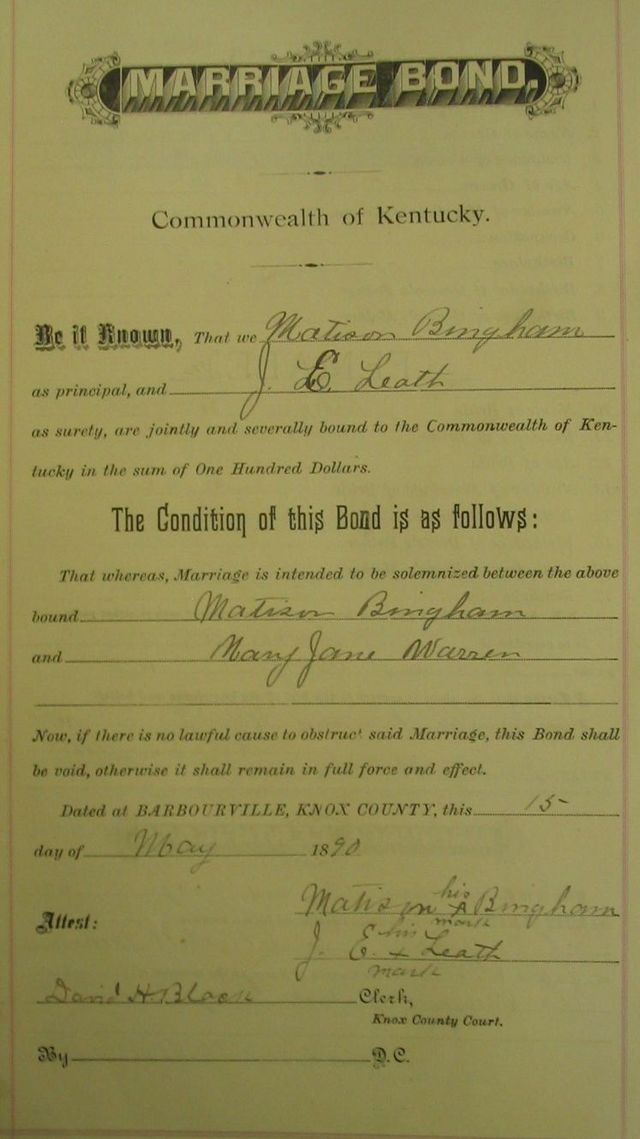 MARRIAGE BOND,
Commonwealth of Kentucky.
Be it Known, That we Matison Bingham
as principal, and J. E. Leath
as surety, are jointly and severally bound to the Commonwealth of Ken-
tucky in the sum of One Hundred Dollars.
The Condition of this Bond is as follows:
That whereas, Marriage is intended to be solemnized between the above
bound Matison Bingham
and Mary Jane Warren
Now, if there is no lawful cause to obstruct said Marriage, this Bond shall
be void, otherwise it shall remain in full force and effect.
Dated at BARBOURVILLE, KNOX COUNTY, this 15
day of May 1890
Matison his x Bingham
mark
Attest:
J. E. his x Leath
mark
David H Black Clerk,
Knox County Court.
By D.C.